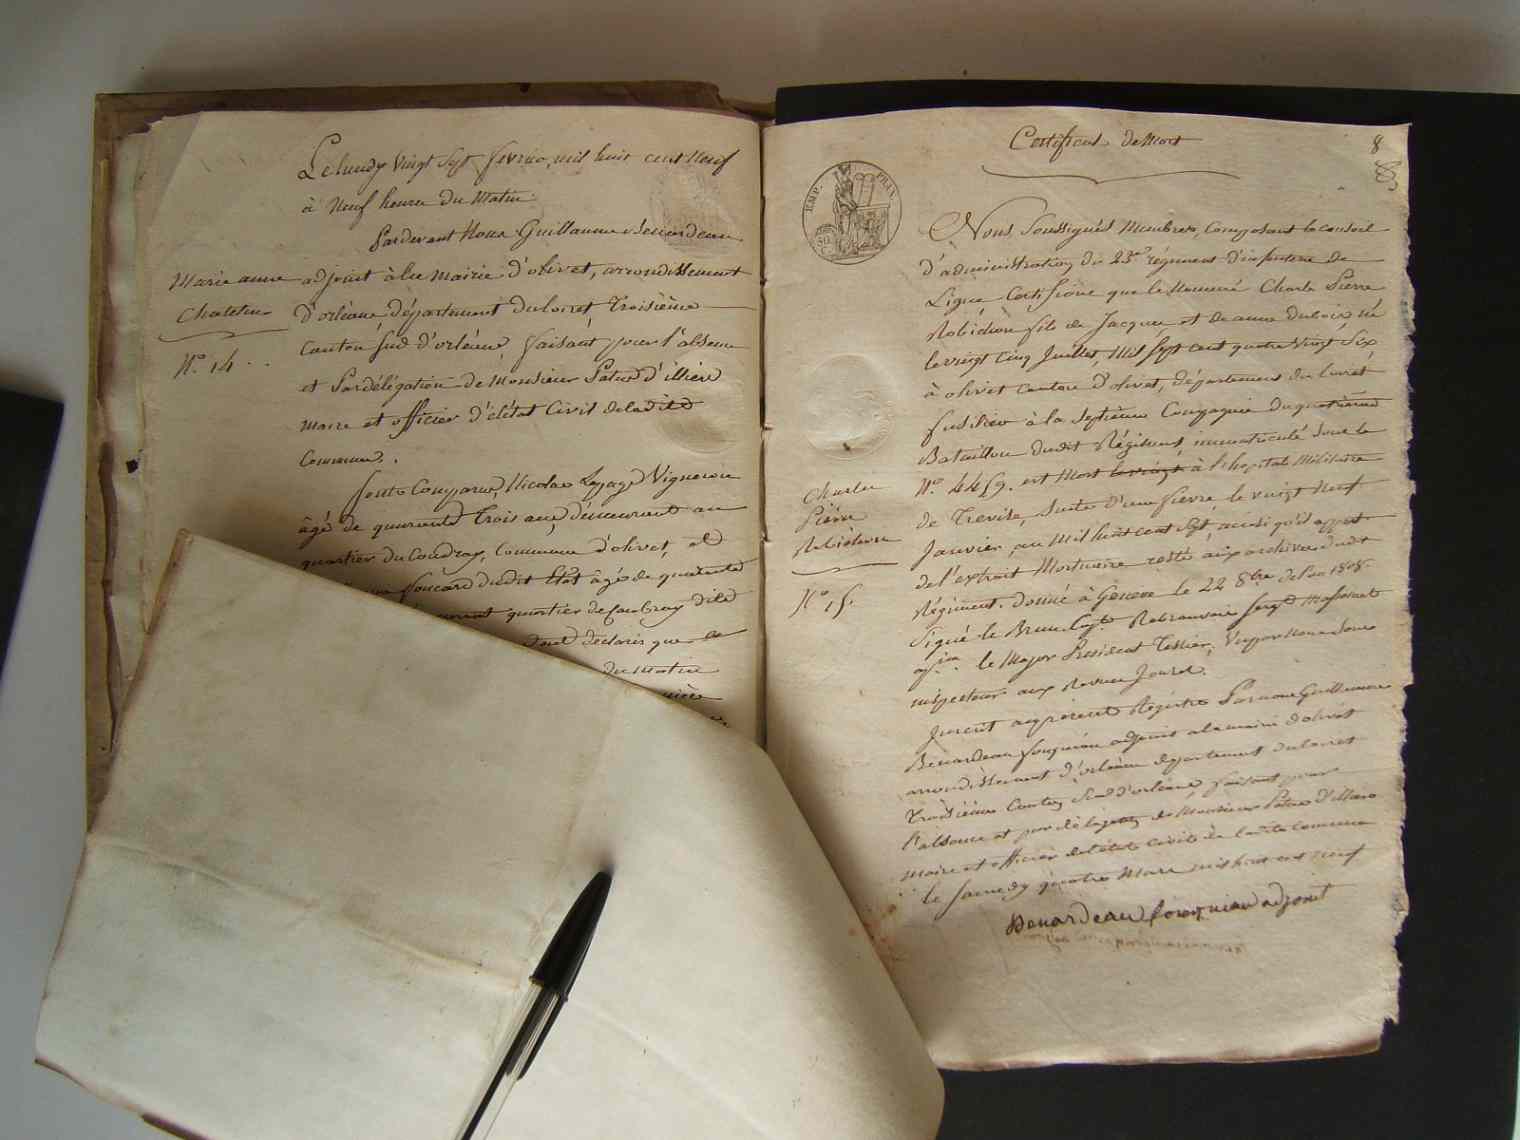 Le lundy vingt Sept fevrier, mil huit cent Neuf
à Neuf heures du Matin
Pardevant Nous Guillaume Benardeau
Marie anne
N.º 14.
adjoint à la mairie d'olivet, arrondissement
d'orléans département du loiret, troisième
canton sud d'orléans, faisant pour l'absence
et Par délégation de Monsieur Patas d'illiers
maire et officier d'état Civil de ladite
Commune.
Sont Comparus, Nicolas Lepage Vigneron
âgé de quarante trois ans, demeurant au
quartier du Coudray, Commune d'olivet, et
foucard dudit Etat âgé de quarante
quartier de Coudray dite
déclaré que
du Matin
Certificat de Mort
8
EMP. FRAN.
Nous, Soussignés Membres, Composant le conseil
d'administration, du 23e régiment d'infanterie de
Ligne Certifions que le Nommé Charle Pierre
Robichon fils de Jacques et de anne duloir né
le vingt Cinq Juillet, Mil Sept cent quatre Vingt Six
à olivet canton d'olivet, département du loiret
fusilier à la Septième Compagnie du quatrième
Bataillon dudit Régiment, immatriculé Sous le
N.º 4459. est Mort le vingt à l'hopital Militaire
Charles
Pierre
Robichon
N.º 15.
de Trevise, Suite d'une fievre le vingt Neuf
Janvier, an Mil huit cent Sept, ainsi qu'il appert
de l'extrait Mortuaire resté aux archives dudit
Régiment. donné à Geneve le 22 8bre de l'an 1808.
Signé le Brun Capt. Sergt
le Major President Tessier, Vu par Nous Sous
inspecteur aux Revues
Inscrit au présent Régistre Par nous Guillaume
Benardeau fouqueau adjoint a la mairie d'olivet
arrondissement d'orléans département du loiret
troisième Canton Sud d'orléans faisant pour
l'absence et par délégation de Monsieur Patas d'illiers
maire et officier de l'état civil de ladite Commune
le Samedy quatre Mars mil huit cent neuf
Benardeau fouqueau adjoint